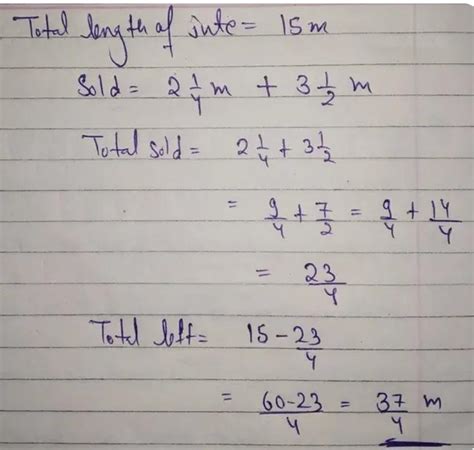 Total length of jute = 15 m
Sold = 2 1/4 m + 3 1/2 m
Total sold = 2 1/4 + 3 1/2
= 9/4 + 7/2 = 9/4 + 14/4
= 23/4
Total left = 15 - 23/4
= 60-23/4 = 37/4 m